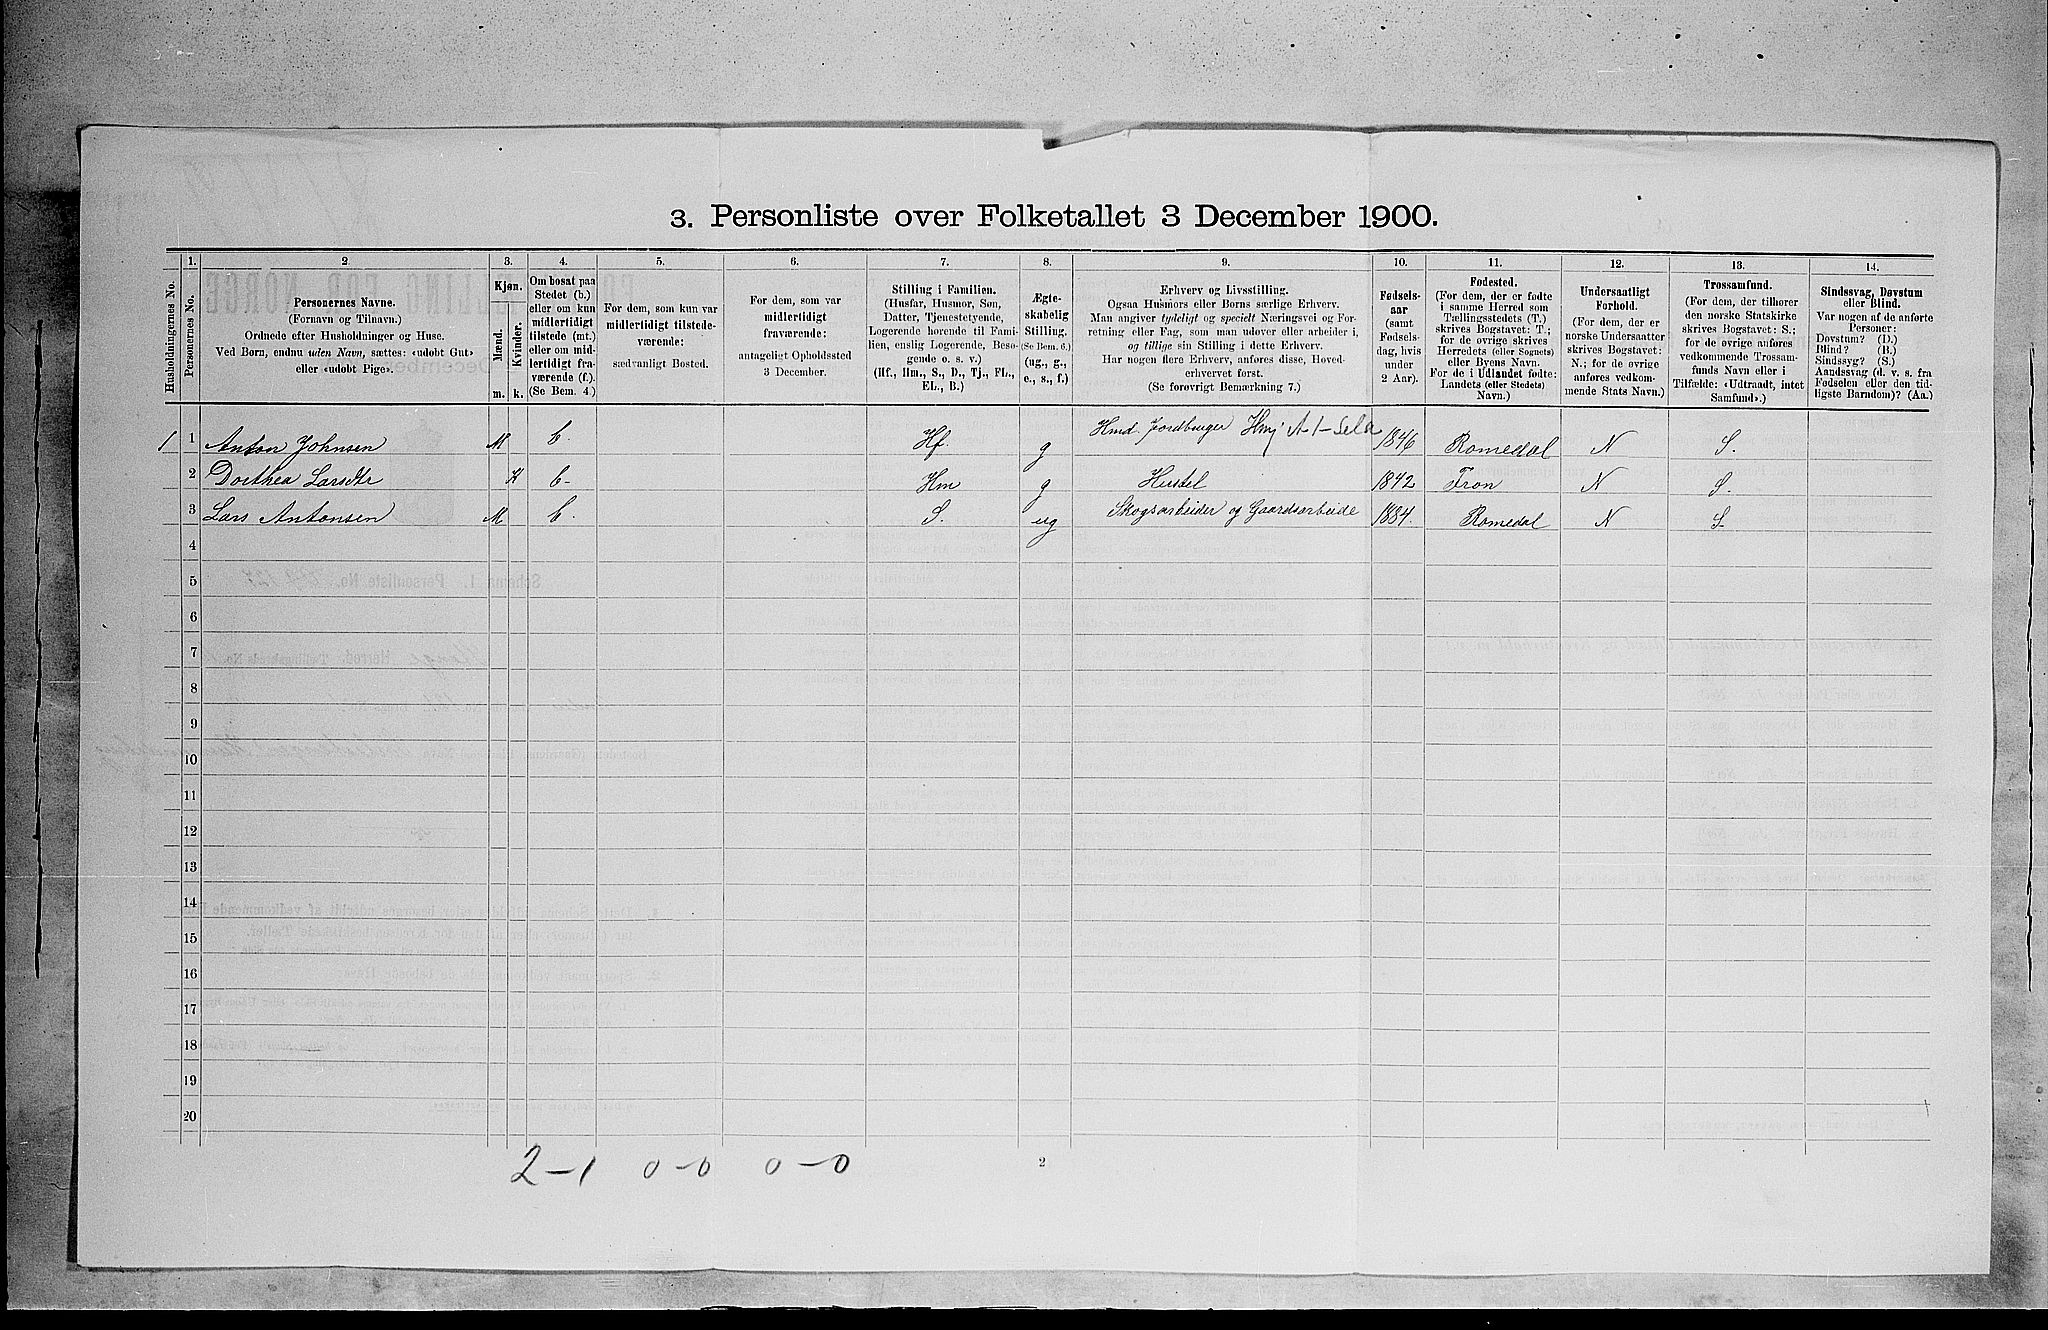 3. Personliste over Folketallet 3 December 1900.
Husholdningernes No.
1. Personernes No.
2. Personernes Navne. (Fornavn og Tilnavn.) Ordnede efter Husholdninger og Huse. Ved Børn, endnu uden Navn, sættes: «udobt Gut» eller «udobt Pige».
3. Kjøn. Mænd. m. Kvinder. k.
4. Om bosat paa Stedet (b.) eller om kun midlertidigt tilstede (mt.) eller om midlertidigt fraværende (f.). (Se Bem. 4.)
5. For dem, som kun var midlertidigt tilstedeværende: sædvanligt Bosted.
6. For dem, som var midlertidigt fraværende: antageligt Opholdssted 3 December.
7. Stilling i Familien. (Husfar, Husmor, Søn, Datter, Tjenestetyende, Logerende hørende til Familien, enslig Logerende, Besøgende o. s. v.) (Hf., Hm., S., D., Tj., FL., EL., B.)
8. Ægteskabelig Stilling. (Se Bem. 6.) (ug., g., e., s., f.)
9. Erhverv og Livsstilling. Ogsaa Husmors eller Børns særlige Erhverv. Man angiver tydeligt og specielt Næringsvei og Forretning eller Fag, som man udøver eller arbeider i, og tillige sin Stilling i dette Erhverv. Har nogen flere Erhverv, anføres disse, Hovederhvervet først. (Se forøvrigt Bemærkning 7.)
10. Fødselsaar (samt Fødselsdag, hvis under 2 Aar).
11. Fødested. (For dem, der er fødte i samme Herred som Tællingsstedets (T.) skrives Bogstavet: T.; for de øvrige skrives Herredets (eller Sognets) eller Byens Navn. For de i Udlandet fødte: Landets (eller Stedets) Navn.)
12. Undersaatligt Forhold. (For dem, der er norske Undersaatter skrives Bogstavet: N.; for de øvrige anføres vedkommende Stats Navn.)
13. Trossamfund. (For dem, der tilhører den norske Statskirke skrives Bogstavet: S.; for de øvrige anføres vedkommende Trossamfunds Navn eller i Tilfælde: «Udtraadt, intet Samfund».)
14. Sindssvag, Døvstum eller Blind. Var nogen af de anførte Personer: Døvstum? (D.) Blind? (B.) Sindssyg? (S.) Aandssvag (d. v. s. fra Fødselen eller den tidligste Barndom)? (Aa.)
1 1 Anton Johnsen M b. Hf. g Hmd. Jordbruger 1846 Romedal N S.
2 Dorthea Larsdtr K b- Hm g Hustel 1842 Fron N S.
3 Lars Antonsen M b. S. ug Skogsarbeider og Gaardsarbeide 1884. Romedal N S
4
5
6
7
8
9
10
11
12
13
14
15
16
17
18
19
20
2–1 0–0 0–0
2